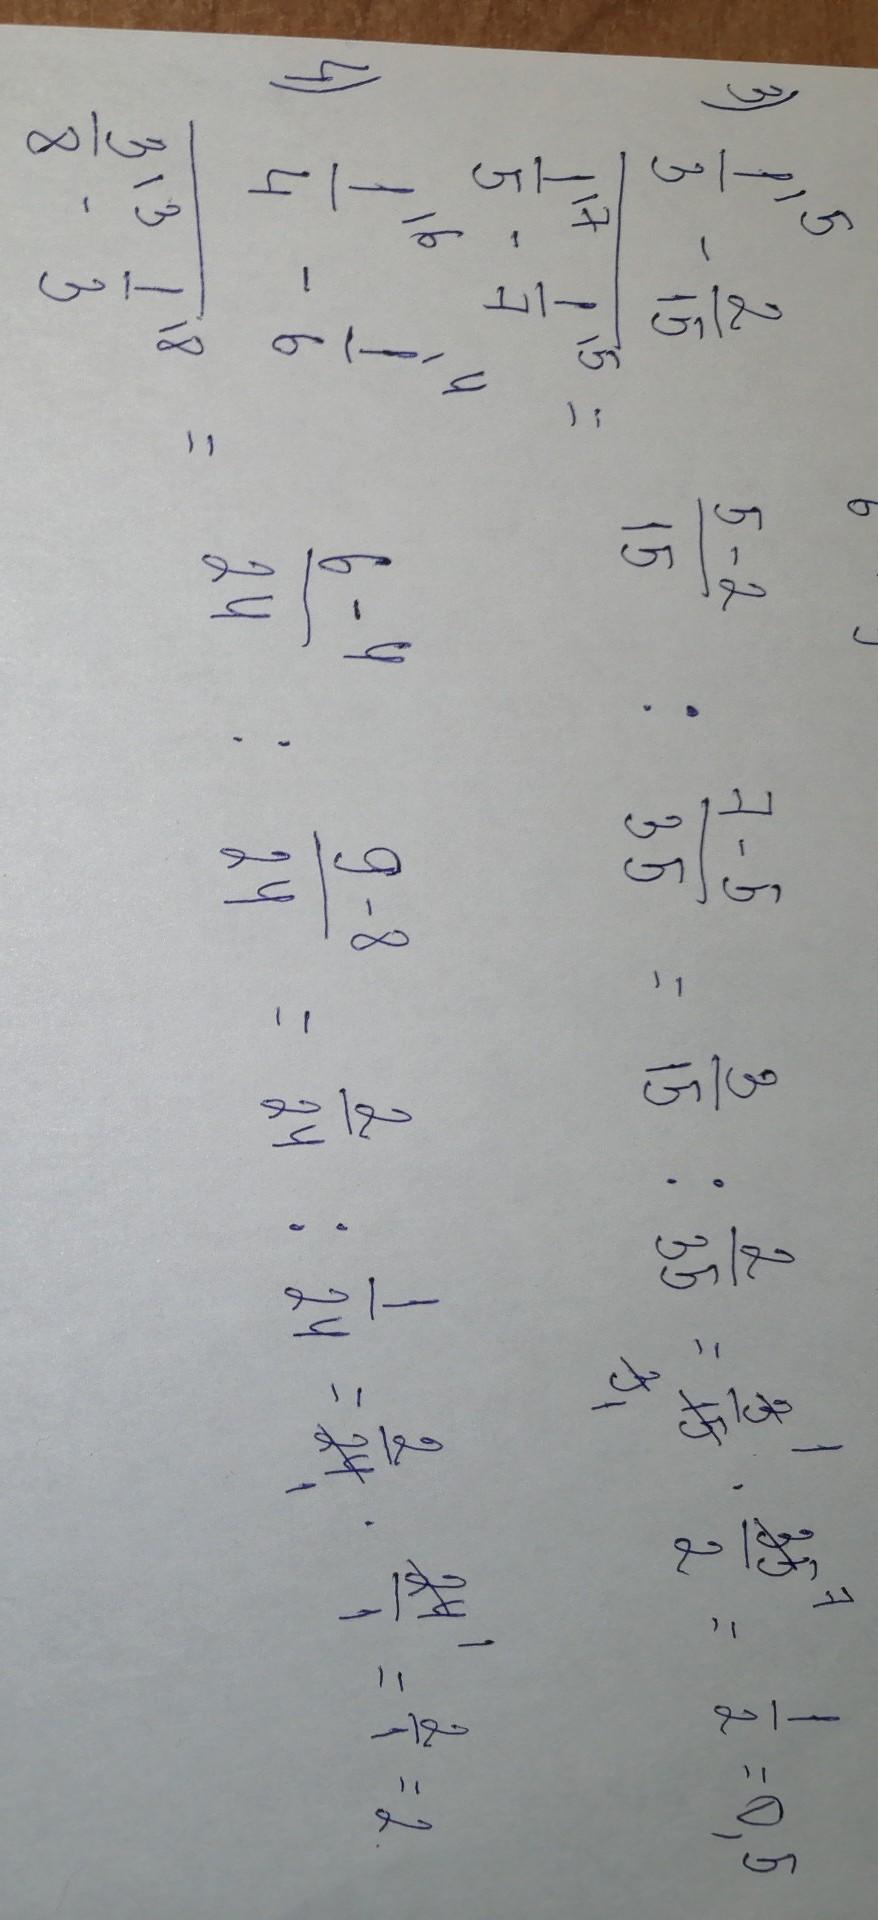 3) (1/3 \5 - 2/15) / (1/5 \7 - 1/7 \5) = (5-2)/15 : (7-5)/35 = 3/15 : 2/35 = 3/15 · 35/2 = 1/2 = 0,5
4) (1/4 \6 - 1/6 \4) / (3/8 \3 - 1/3 \8) = (6-4)/24 : (9-8)/24 = 2/24 : 1/24 = 2/24 · 24/1 = 2/1 = 2